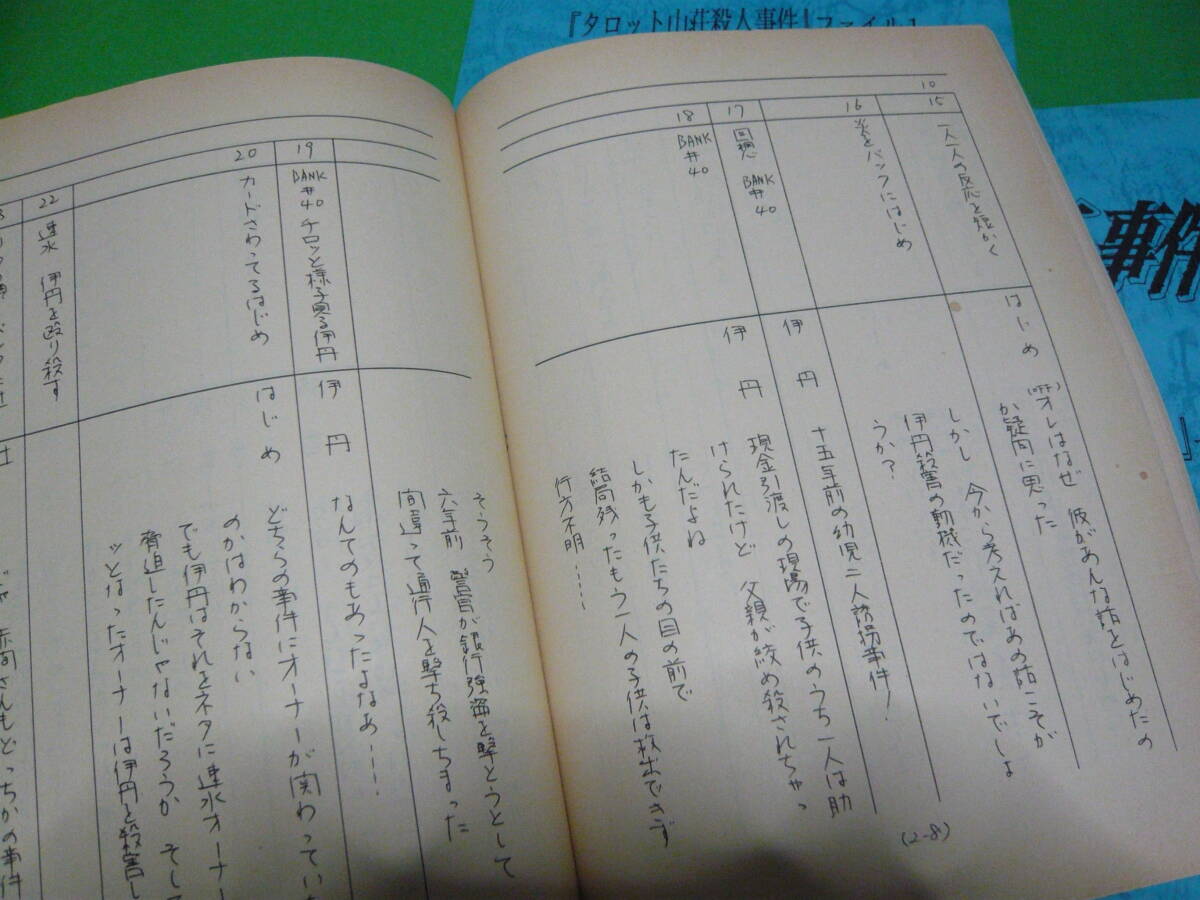 『タロット山荘殺人事件』ファイル1
事件
10
15
一人一人の反応を短かく
はじめ
(OFF)オレはなぜ 彼があんな話をはじめたの
か疑問に思った
しかし 今から考えればあの話こそが
伊丹殺害の動機だったのではないでしょ
うか?
16
炎をバックにはじめ
17
回想 BANK #40
伊丹
十五年前の幼児二人誘拐事件!
18
BANK #40
伊丹
現金引渡しの現場で子供のうち一人は助
けられたけど 父親が絞め殺されちゃっ
たんだよね
しかも子供たちの目の前で
結局残ったもう一人の子供は救出できず
行方不明……
(2-8)
そうそう
六年前 警官が銀行強盗を撃とうとして
間違って通行人を撃ち殺しちまった
19
BANK #40 チロッと様子見る伊丹
伊丹
なんてのもあったよなあ……
20
カードさわってるはじめ
はじめ
どちらの事件にオーナーが関わってい
のかはわからない
でも伊丹はそれをネタに速水オーナー
脅迫したんじゃないだろうか そして
ッとなったオーナーは伊丹を殺害し
22
速水 伊丹を殴り殺す
赤間さんもどっちかの事件